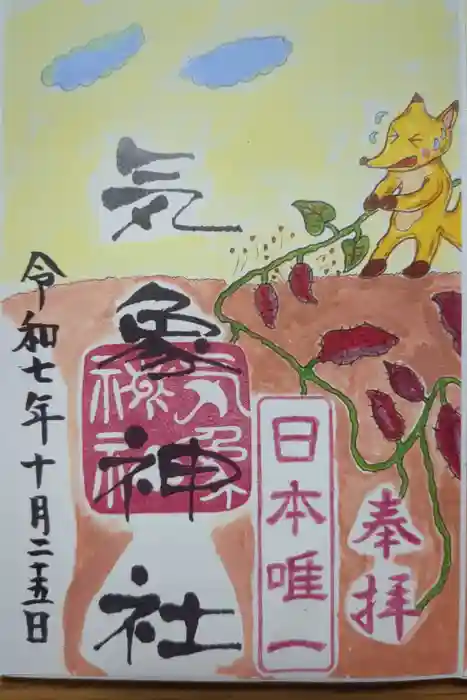 奉拝
日本唯一
気象神社
令和七年十月二十五日